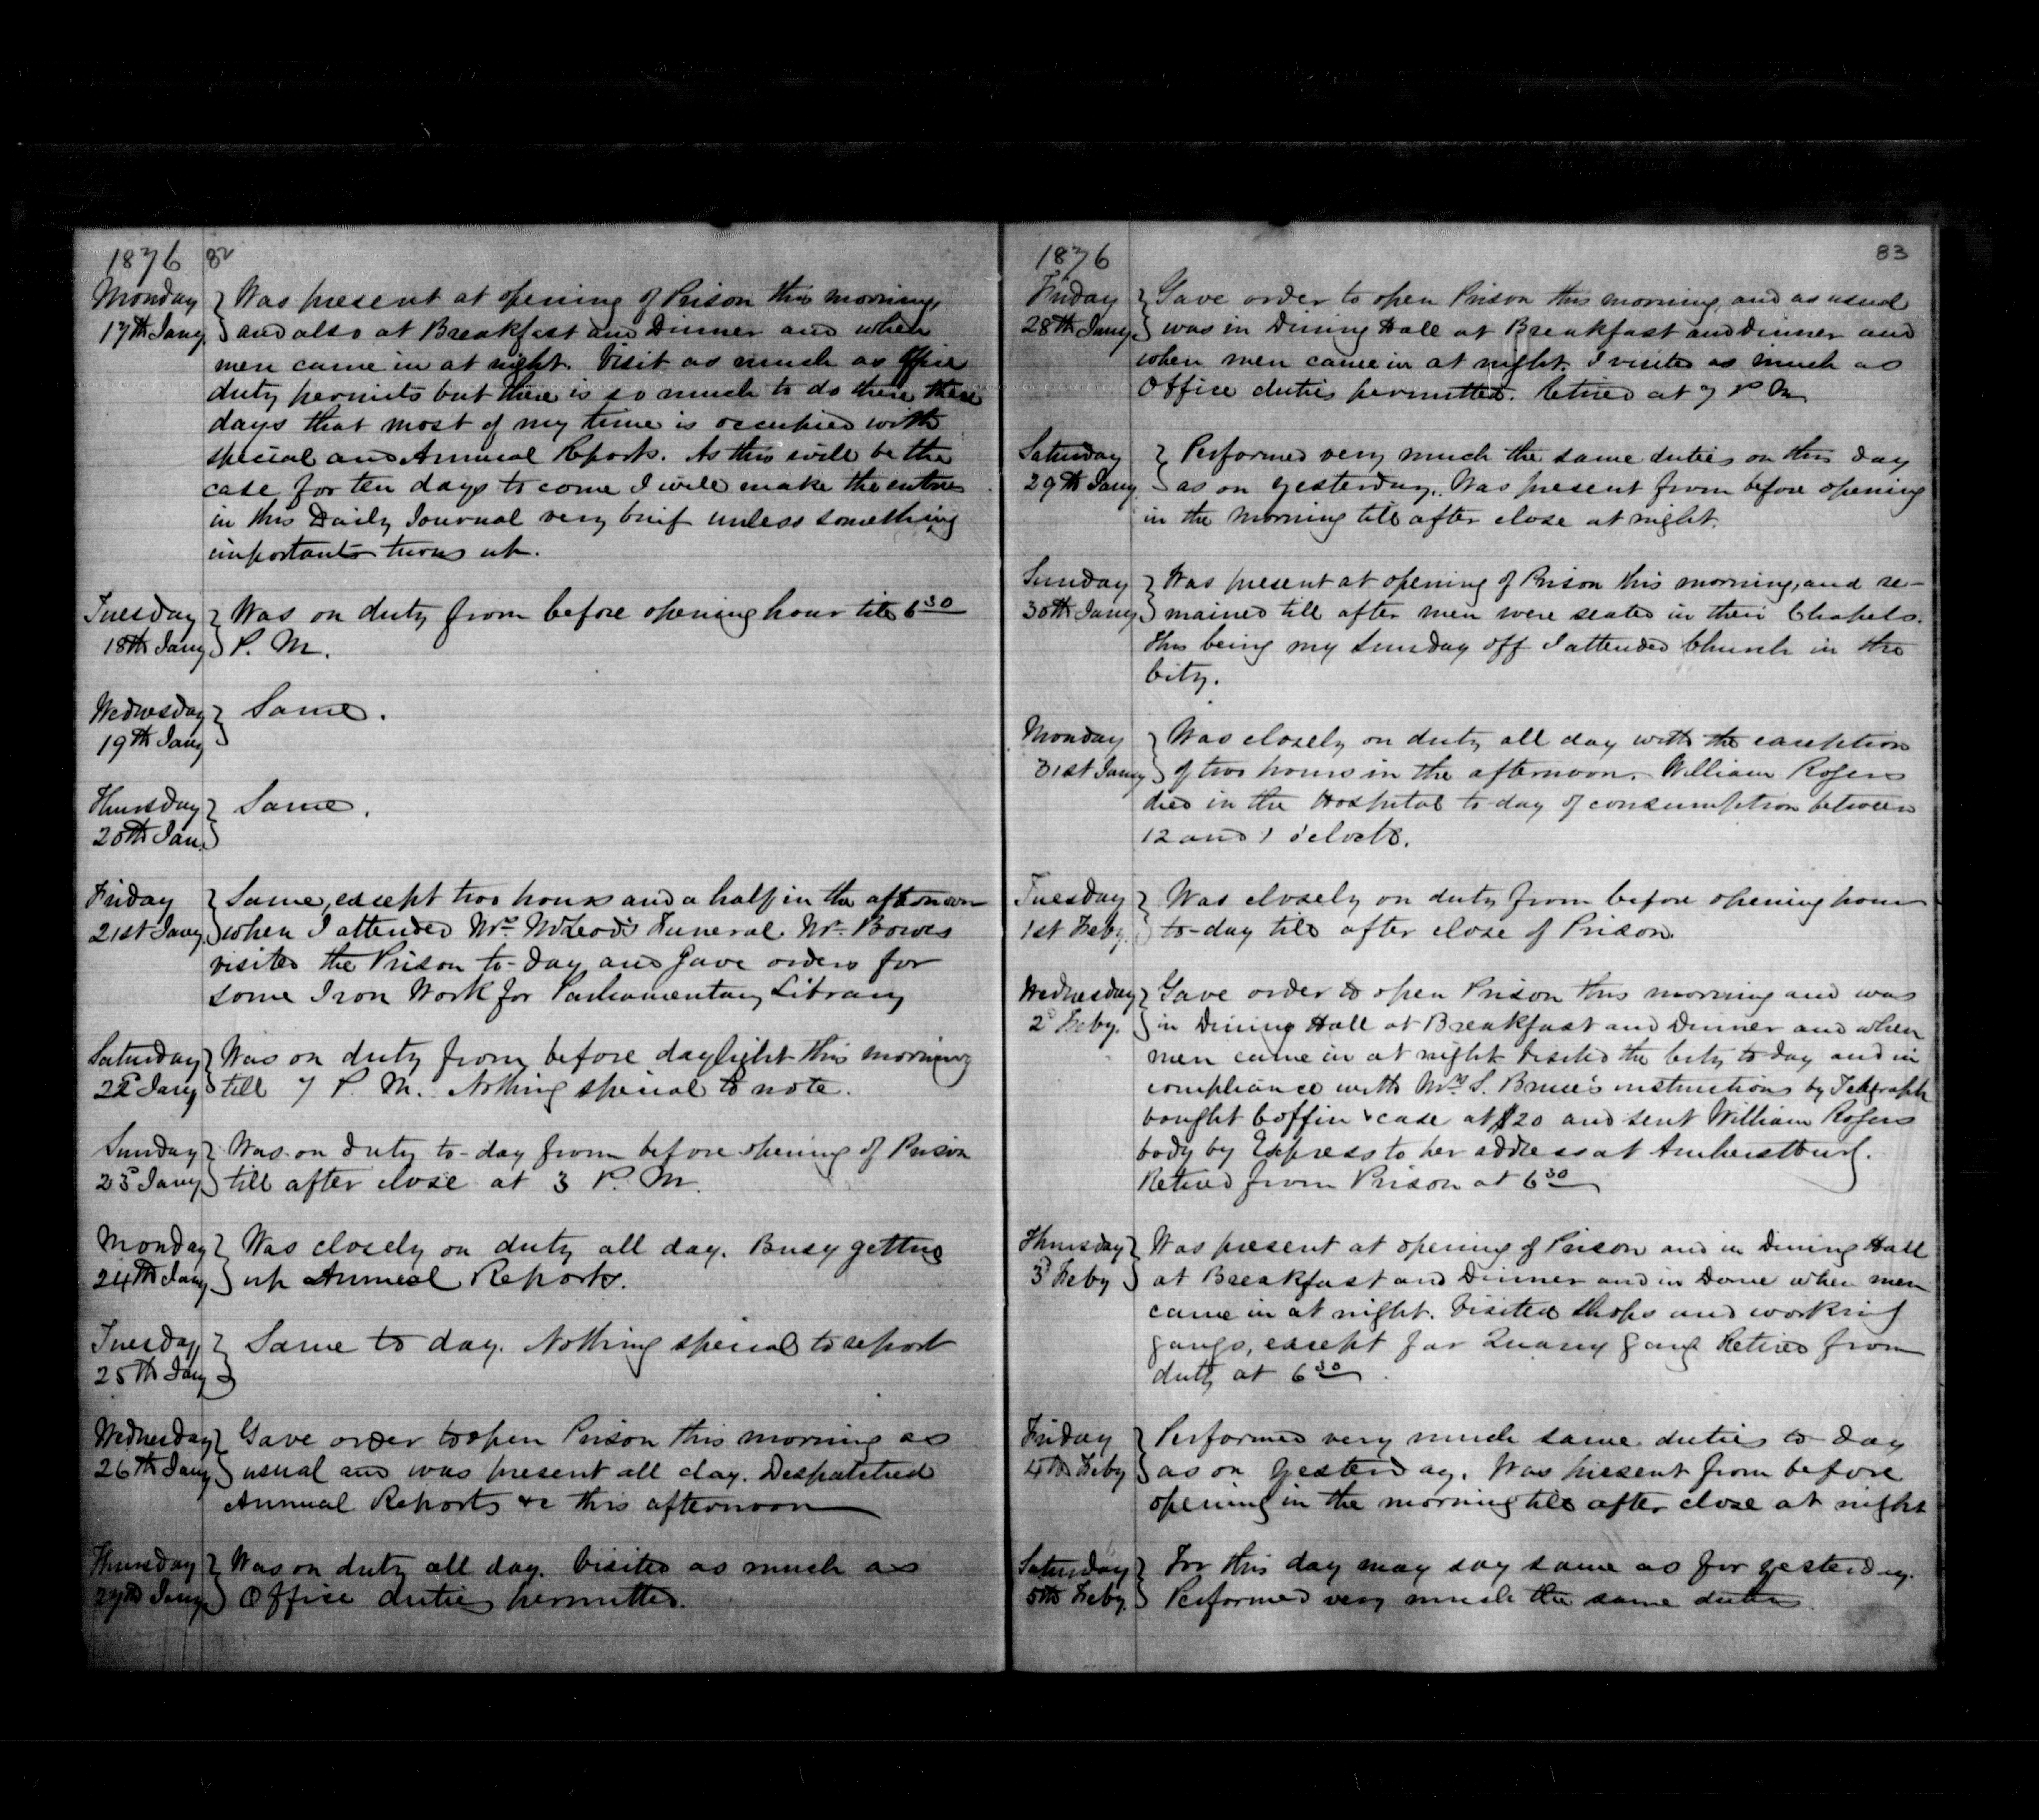 1876 82
Monday Was present at opening of Prison this morning,
17th Jany. and also at Breakfast and Dinner and when
men came in at night. Visit as much as Office
duty permits but there is so much to do there these
days that most of my time is occupied with
special and Annual Reports. As this will be the
case for ten days to come I will make the entries
in this Daily Journal very brief unless something
important turns up.
Tuesday Was on duty from before opening hour till 6 30
18th Jany P. M.
Wednesday Same.
19th Jany
Thursday Same.
20th Jan.
Friday Same, except two hours and a half in the afternoon
21st Jany. when I attended Mrs McLeod's Funeral. Mr. Bowes
visited the Prison to-day and gave orders for
some Iron Work for Parliamentary Library
Saturday Was on duty from before daylight this morning
22d Jany till 7 P. M. Nothing special to note.
Sunday Was on duty to-day from before opening of Prison
23d Jany till after close at 3 P. M.
Monday Was closely on duty all day. Busy getting
24th Jany up Annual Reports.
Tuesday Same to day. Nothing special to report
25th Jany
Wednesday Gave order to open Prison this morning as
26th Jany usual and was present all day. Despatched
Annual Reports &c this afternoon
Thursday Was on duty all day. Visited as much as
27th Jany Office duties permitted.
1876 83
Friday Gave order to open Prison this morning, and as usual
28th Jany. was in Dining Hall at Breakfast and Dinner and
when men came in at night. I visited as much as
Office duties permitted. Retired at 7 P M
Saturday Performed very much the same duties on this day
29th Jany as on yesterday. Was present from before opening
in the morning till after close at night.
Sunday Was present at opening of Prison this morning, and re-
30th Jany mained till after men were seated in their Chapels.
This being my Sunday off I attended Church in the
City.
Monday Was closely on duty all day with the exception
31st Jany of two hours in the afternoon. William Rogers
died in the Hospital to-day of consumption between
12 and 1 o'clock.
Tuesday Was closely on duty from before opening hour
1st Feby. to-day till after close of Prison.
Wednesday Gave order to open Prison this morning and was
2d Feby. in Dining Hall at Breakfast and Dinner and when
men came in at night. Visited the City to day and in
compliance with Mrs S. Bruce's instructions by Telegraph
bought Coffin & case at $20 and sent William Rogers
body by Express to her address at Amherstburg.
Retired from Prison at 6 30
Thursday Was present at opening of Prison and in Dining Hall
3d Feby at Breakfast and Dinner and in Dome when men
came in at night. Visited Shops and working
gangs, except far Quarry gang Retired from
duty at 6 30
Friday Performed very much same duties to-day
4th Feby as on yesterday. Was present from before
opening in the morning till after close at night
Saturday For this day may say same as for yesterday.
5th Feby. Performed very much the same duties